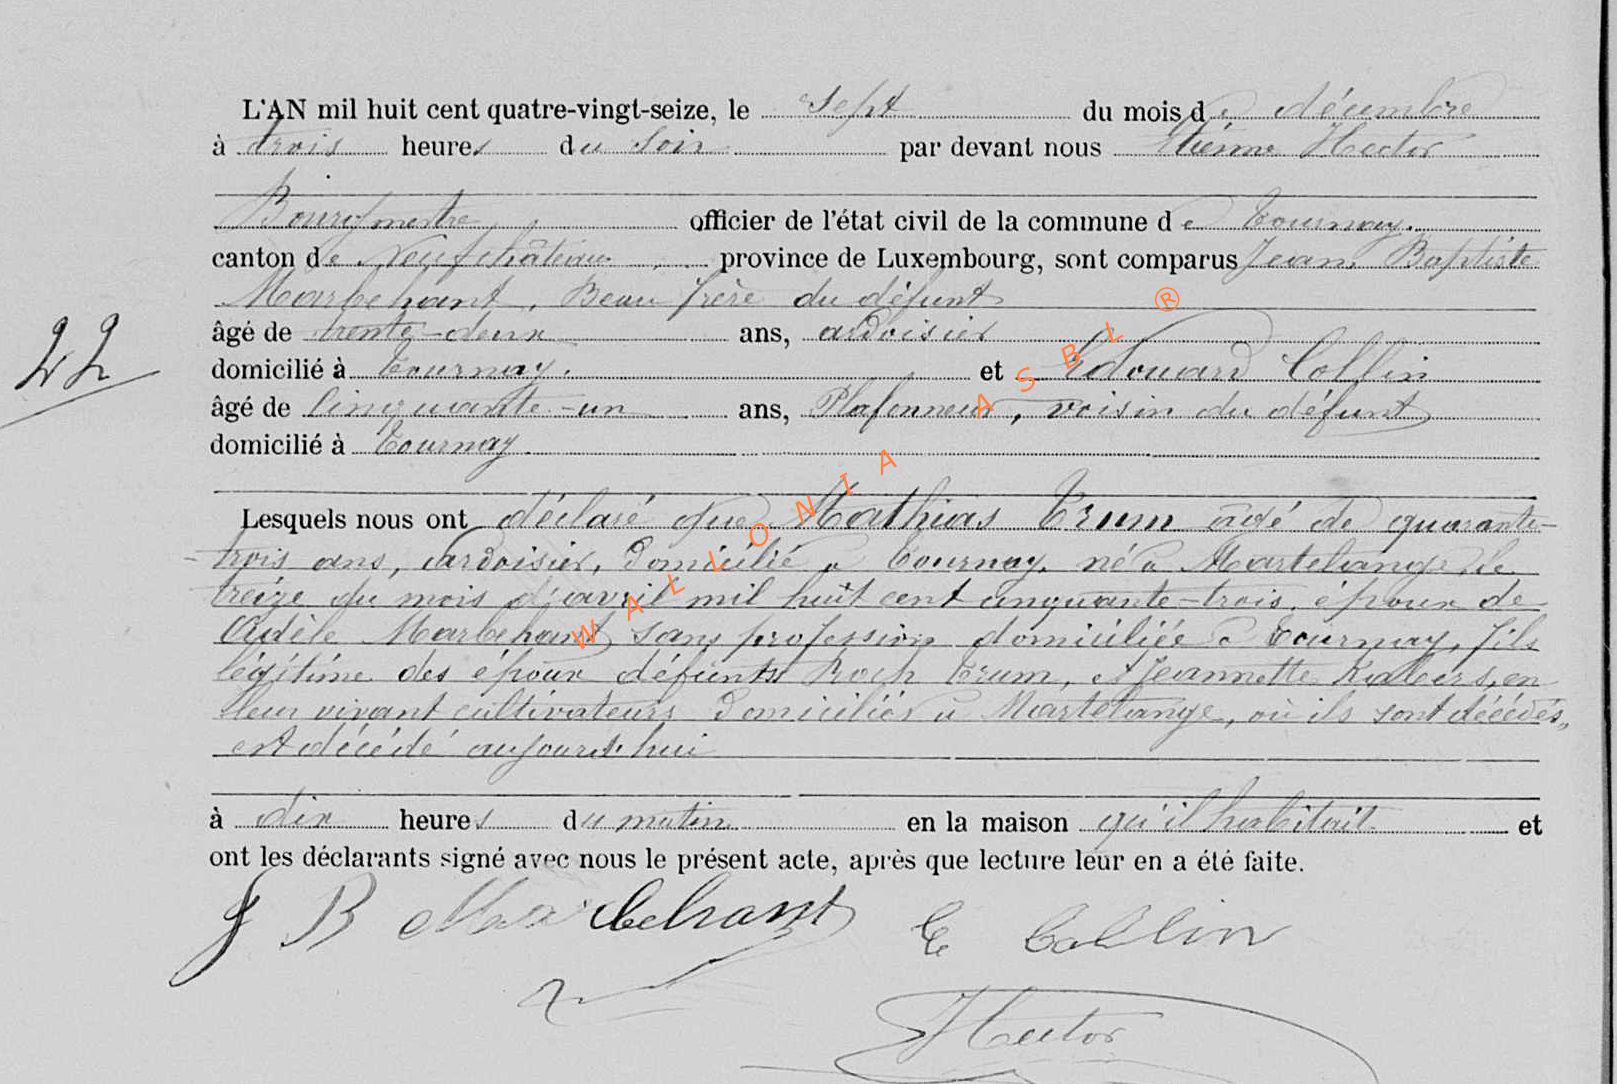 L'AN mil huit cent quatre-vingt-seize, le sept du mois de décembre
à trois heures du soir par devant nous Etienne Hector
Bourgmestre officier de l'état civil de la commune de Tournay.
canton de Neufchâteau province de Luxembourg, sont comparus Jean Baptiste
Marbehant, Beau frère du défunt
âgé de trente-deux ans, ardoisier
22
domicilié à Tournay. et Edouard Collin
âgé de Cinquante-un ans, Plafonneur, voisin du défunt
domicilié à Tournay.
Lesquels nous ont déclaré que Mathias Trum âgé de quarante-
-trois ans, ardoisier, domicilié à Tournay, né à Martelange, le
treize du mois d'avril mil huit cent cinquante-trois, époux de
Adèle Marbehant sans profession domiciliée à Tournay, fils
légitime des époux défunts Roch Trum, et Jeannette en
leur vivant cultivateurs domiciliés à Martelange, où ils sont décédés,
est décédé aujourd'hui
à dix heures du matin en la maison qu'il habitait et
ont les déclarants signé avec nous le présent acte, après que lecture leur en a été faite.
J B Marbehant E Collin
Hector
WALLONIA ASBL ®